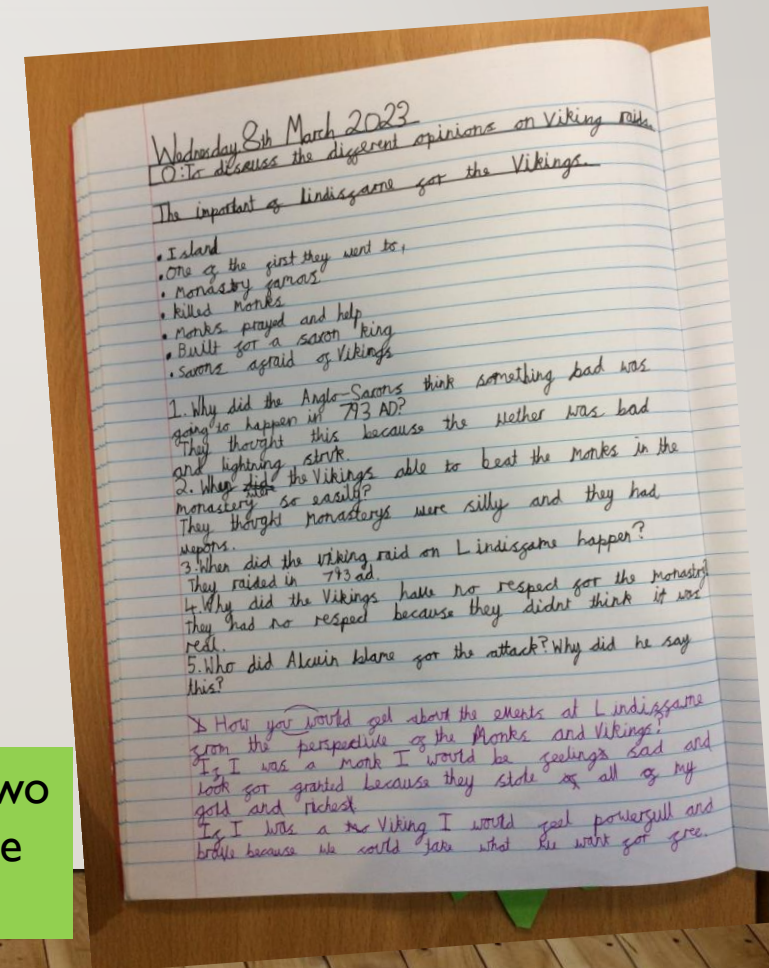 Wednesday 8th March 2023
LO: To discuss the different opinions on Viking raids.
The important of lindisfarne for the Vikings.
• Island
• One of the first they went to,
• Monastry famous
• killed Monks
• Monks prayed and help
• Built for a saxon king
• saxons afraid of Vikings
1. Why did the Anglo-Saxons think something bad was
going to happen in 793 AD?
They thought this because the Wether was bad
and lightning struk.
2. Why were the Vikings able to beat the Monks in the
monastery so easily?
They thought Monasterys were silly and they had
wepons.
3. When did the viking raid on Lindisfarne happen?
They raided in 793 ad.
4. Why did the Vikings have no respect for the monastry?
They had no respect because they didnt think it was
real.
5. Who did Alcuin blame for the attack? Why did he say
this?
How you would feel about the events at Lindisfarne
from the perspective of the Monks and Vikings?
If I was a monk I would be feeling sad and
look for granted because they stole all of my
gold and richest
If I was a Viking I would feel powerfull and
brave because we could take what we want for free.
wo
e